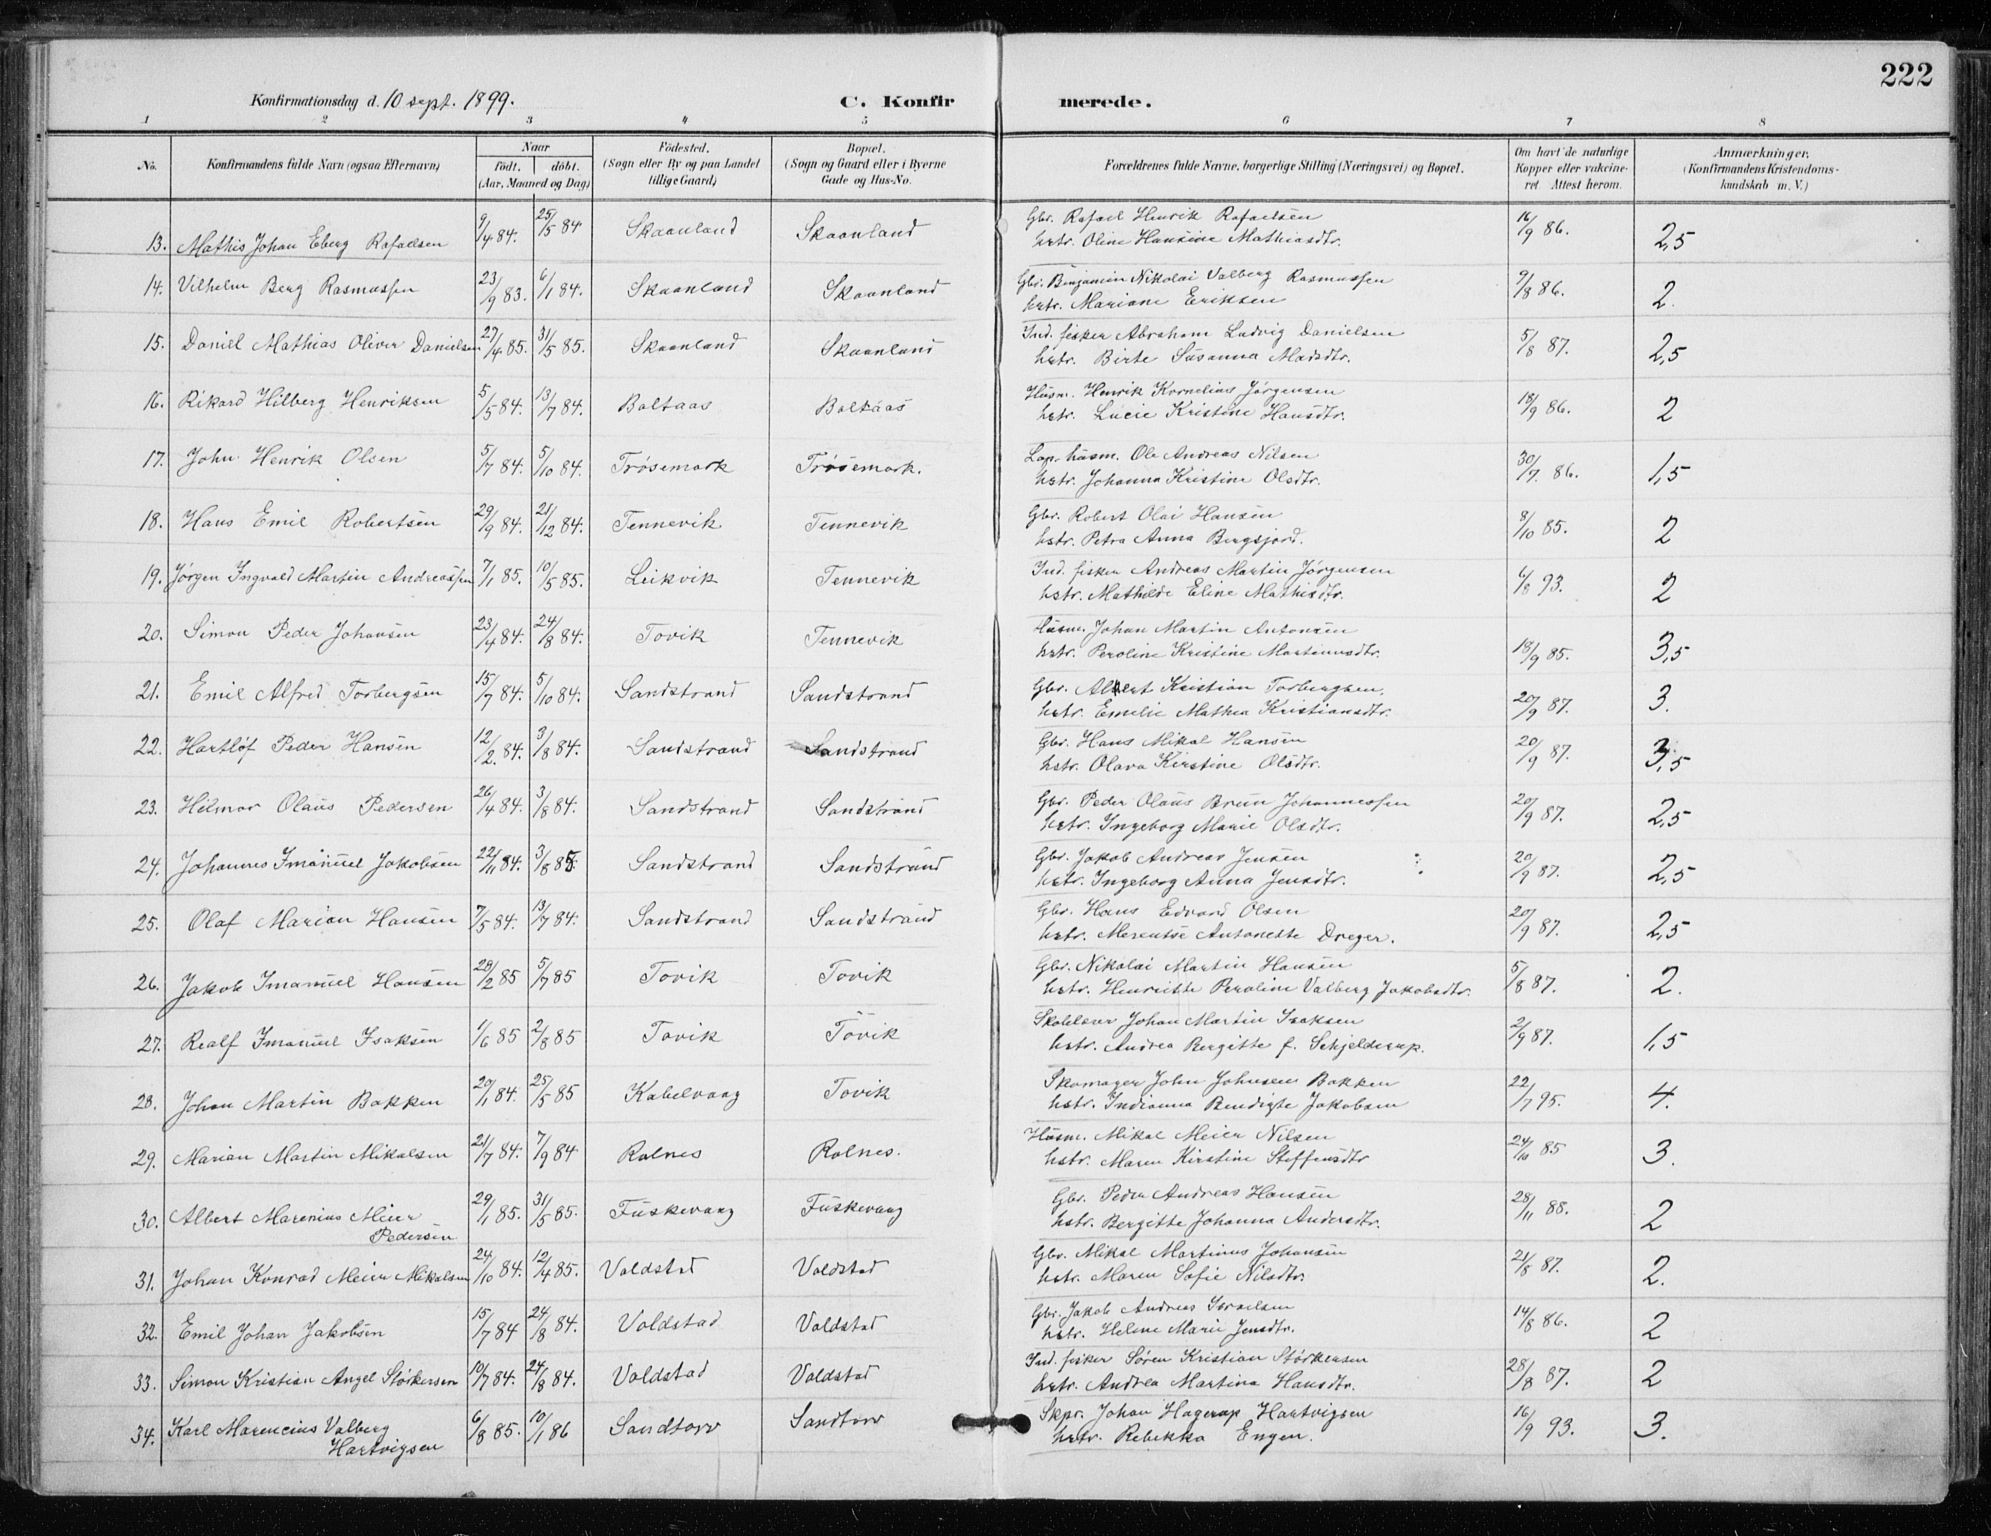 222
Konfirmationsdag d. 10 sept. 1899.
C. Konfirmerede.
1 2 3 4 5 6 7 8
No. Konfirmandens fulde Navn (ogsaa Efternavn) Naar født. døbt. (Aar, Maaned og Dag) Fødested. (Sogn eller By og paa Landet tillige Gaard) Bopæl. (Sogn og Gaard eller i Byerne Gade og Hus-No. Forældrenes fulde Navne, borgerlige Stilling (Næringsvei) og Bopæl. Om havt de naturlige Kopper eller vakcineret. Attest herom. Anmærkninger. (Konfirmandens Kristendomskundskab m. V.)
13. Mathis Johan Eberg Rafaelsen 9/4 84. 25/5 84 Skaanland Skaanland Gbr. Rafael Henrik Rafaelsen 16/9 86. 2,5
hstr. Oline Hansine Mathiasdtr.
14. Vilhelm Berg Rasmussen 23/9 83. 6/1 84. Skaanland Skaanland Gbr. Benjamin Nikolai Valberg Rasmussen 9/8 86. 2.
hstr. Mariane Eriksen
15. Daniel Mathias Oliver Danielsen 27/4 85. 31/5 85. Skaanland Skaanland Ind. fisker Abraham Ludvig Danielsen 5/8 87. 2,5
hstr. Birte Susanna Madsdtr.
16. Rikard Hilberg Henriksen 5/5 84. 13/7 84. Boltaas Boltaas Husm. Henrik Kornelius Jørgensen 18/9 86. 2
hstr. Lucie Kristine Hansdtr.
17. John Henrik Olsen 5/7 84. 5/10 84. Trøsemark Trøsemark. Lap. husm. Ole Andreas Nilsen 30/7. 86. 1,5
hstr. Johanna Kristine Olsdtr.
18. Hans Emil Robertsen 29/9 84. 21/12 84. Tennevik Tennevik Gbr. Robert Olai Hansen 8/10 85. 2
hstr. Petra Anna Bergsjord.
19. Jørgen Ingvald Martin Andreassen 7/1 85. 10/5 85. Leikvik Tennevik Ind. fisker Andreas Martin Jørgensen 6/8 93. 2
hstr. Mathilde Eline Mathisdtr.
20. Simon Peder Johansen 23/4 84. 24/8 84. Tovik Tennevik Husm. Johan Martin Antonsen 18/9 85. 3,5
hstr. Peroline Kristine Martinusdtr.
21. Emil Alfred Torbergsen 15/7 84. 5/10 84. Sandstrand Sandstrand Gbr. Albert Kristian Torbergsen. 20/9 87. 3.
hstr. Emelie Mathea Kristiansdtr.
22. Hartløf Peder Hansen 12/2. 84. 3/8 84. Sandstrand Sandstrand Gbr. Hans Mikal Hansen 20/9 87. 3,5
hstr. Olava Kirstine Olsdtr.
23. Hilmar Olaus Pedersen 26/4 84. 3/8 84. Sandstrand Sandstrand Gbr. Peder Olaus Brun Johannessen 20/9 87. 2,5
hstr. Ingeborg Marie Olsdtr.
24. Johannes Imanuel Jakobsen 22/11 84. 3/8 85. Sandstrand Sandstrand Gbr. Jakob Andreas Jensen 20/9 87. 2,5
hstr. Ingeborg Anna Jensdtr.
25. Olaf Marian Hansen 7/5 84. 13/7 84. Sandstrand Sandstrand Gbr. Hans Edvard Olsen 20/9 87. 2,5
hstr. Merentse Antonette Dreyer.
26. Jakob Imanuel Hansen 28/2 85 5/7 85 Tovik Tovik Gbr. Nikolai Martin Hansen 5/8 87. 2.
hstr. Henriette Peroline Valberg Jakobsdtr.
27. Realf Imanuel Isaksen 1/6 85 2/8 85 Tovik Tovik Skolelærer Johan Martin Isaksen 2/9 87. 1,5
hstr. Andrea Bergitte f. Schjelderup.
28. Johan Martin Bakken 20/1 84. 25/5 85 Kabelvaag Tovik Skomager John Johnsen Bakken 22/7 95. 4.
hstr. Indianna Bendigte Jakobsen
29. Marian Martin Mikalsen 21/7 84. 7/9 84 Rolnes Rolnes. Husm. Mikal Meier Nilsen 24/10 85 3.
hstr. Maren Kirstine Steffensdtr
30. Albert Marenius Meier 29/1 85. 31/5 85. Fuskevaag Fuskevaag Gbr. Peder Andreas Hansen 28/11 88. 2
Pedersen hstr. Bergitte Johanna Andersdtr.
31. Johan Konrad Meier Mikalsen 24/10 84. 12/4 85. Voldstad Voldstad Gbr. Mikal Martinus Johansen 21/8 87. 2.
hstr. Maren Sofie Nilsdtr.
32. Emil Johan Jakobsen 15/7 84 24/8 84. Voldstad Voldstad Gbr. Jakob Andreas Israelsen 14/8 86. 2
hstr. Helene Marie Jensdtr.
33. Simon Kristian Angel Størkersen 10/7 84. 24/8 84. Voldstad Voldstad Ind. fisker Søren Kristian Størkersen 28/8 87. 2
hstr. Andrea Martina Hansdtr.
34. Karl Marencius Valberg 6/8 85. 10/1 86 Sandtorv Sandtorv Skpr. Johan Hagerup Hartvigsen 16/9 93. 3.
Hartvigsen hstr. Rebekka Engen.